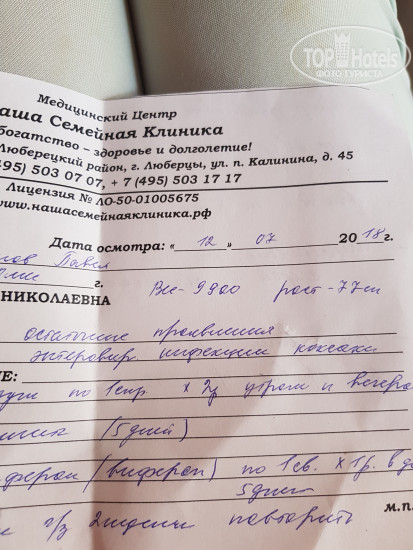 TOP Hotels
ФОТО ТУРИСТА
Медицинский Центр
аша Семейная Клиника
богатство – здоровье и долголетие!
Люберецкий район, г. Люберцы, ул. п. Калинина, д. 45
495) 503 07 07, + 7 (495) 503 17 17
Лицензия № ЛО-50-01005675
www.нашасемейнаяклиника.рф
Дата осмотра: «12» 07 2018г.
ов Павел
г.
НИКОЛАЕВНА Вес-9900 рост-77см
остаточные проявления
энтеровир инфекции коксаки
ИЕ:
по 1 впр х 2р утром и вечером
(5 дней)
ферон (виферон) по 1 св. х 1р. в д
5 дней
м.п.
ч/з 2 недели повторить